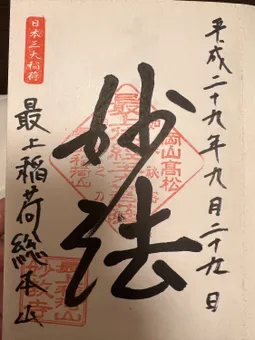 平成二十九年九月二十九日
岡山高松
妙法
日本三大稲荷
最上稲荷総本山